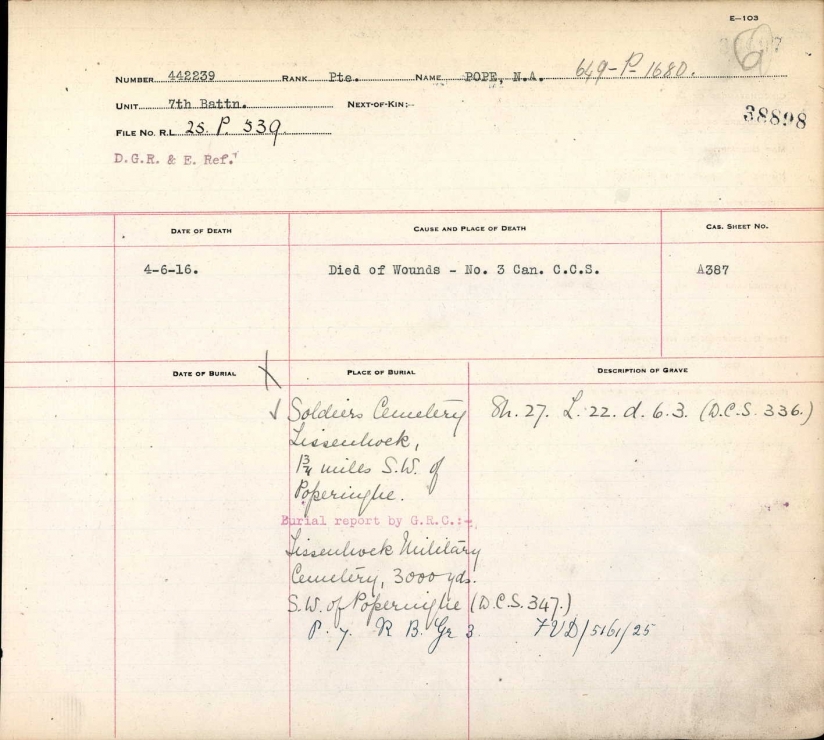 E—103
649-P-1680.
NUMBER 442239 RANK Pte. NAME POPE, N.A.
UNIT 7th Battn. NEXT-OF-KIN:-
38898
FILE NO. R.L. 25. P. 539
D.G.R. & E. Ref.
DATE OF DEATH CAUSE AND PLACE OF DEATH CAS. SHEET NO.
4-6-16. Died of Wounds - No. 3 Can. C.C.S. A387
DATE OF BURIAL PLACE OF BURIAL DESCRIPTION OF GRAVE
Soldiers Cemetery Sh. 27. L. 22. d. 6.3. (D.C.S. 336.)
Lissenhoek,
1¾ miles S.W. of
Poperinghe.
Burial report by G.R.C.:-
Lissenhoek Military
Cemetery, 3000 yds.
S.W. of Poperinghe (D.C.S. 347.)
P. 7. R B. Gr 3. FVD/5161/25